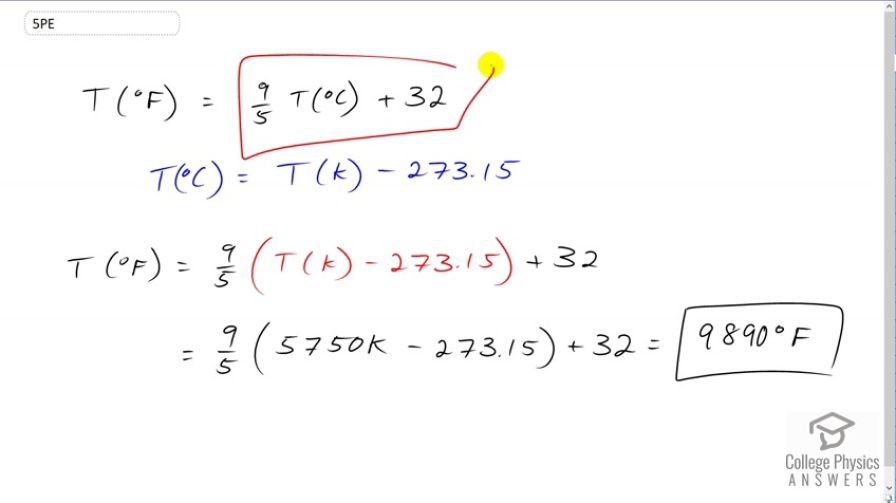 5PE
T(°F) = 9/5 T(°C) + 32
T(°C) = T(K) - 273.15
T(°F) = 9/5 (T(K) - 273.15) + 32
= 9/5 (5750K - 273.15) + 32 = 9890°F
College Physics
ANSWERS